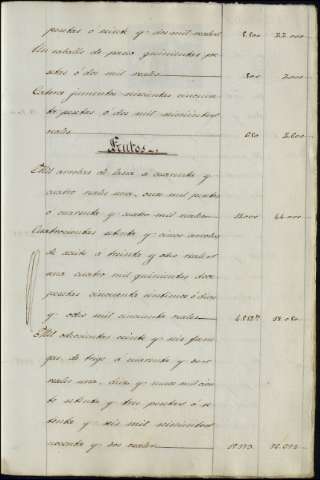 pesetas o veinte y dos mil reales 5.500 22.000
Un caballo de precio quinientas pe
setas ó dos mil reales 500 2000
Catorce jumentos seiscientas cincuen
ta pesetas ó dos mil seiscientos
reales 650 2.600
Frutos
Mil arrobas de lana a cuarenta y
cuatro reales una, once mil pesetas
o cuarenta y cuatro mil reales 11.000 44.000
Cuatrocientas setenta y cinco arrobas
de aceite a treinta y ocho reales
una cuatro mil quinientas doce
pesetas cincuenta centimos ó diez
y ocho mil cincuenta reales 4.512 18.050
Mil ochocientas veinte y seis fane
gas de trigo a cuarenta y dos
reales una, diez y nueve mil cien
to setenta y tres pesetas ó se
tenta y seis mil seiscientos
noventa y dos reales 19.173 76.692